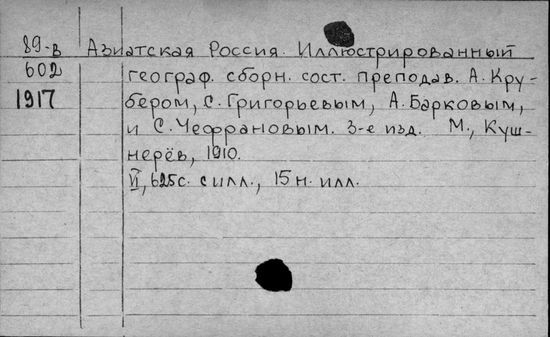 89-в Азиатская Россия. Иллюстрированный
602 географ. сборн. сост. преподав. А. Кру-
1917 бером, С. Григорьевым, А. Барковым,
и С. Чефрановым. 3-е изд. М., Куш-
нерёв, 1910.
VI, 625 с. с илл., 15 н. илл.